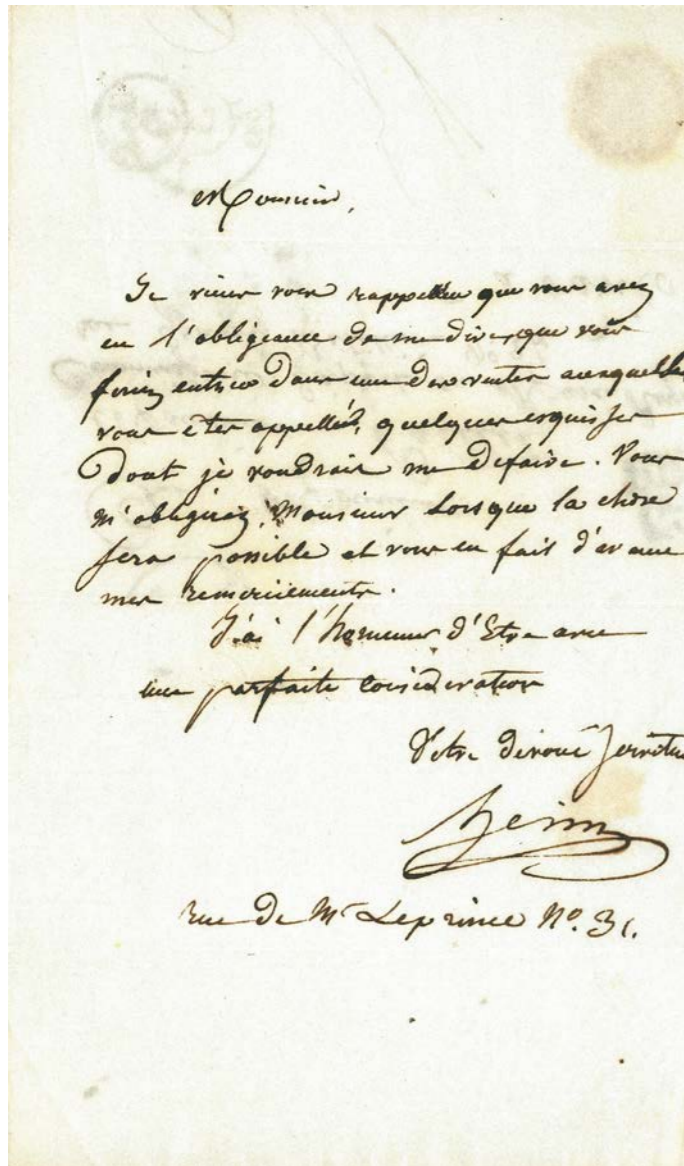 Monsieur,
Je viens vous rappeller que vous avez
eu l'obligeance de me dire, que vous
feriez entrer dans une des ventes auxquelles
vous êtes appellés, quelques esquisses
dont je voudrais me defaire. Vous
m'obligeriez, Monsieur lorsque la chose
sera possible et vous en fait d'avance
mes remerciements.
J'ai l'honneur d'Etre avec
une parfaite consideration
Votre devoué serviteur
Heim
rue de Mr Leprince No. 31.